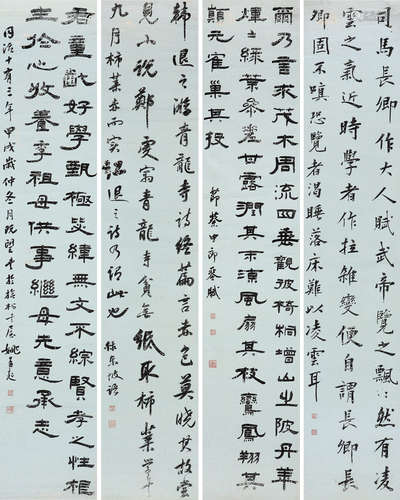 司馬長卿作大人賦武帝覽之飄飄然有凌
雲之氣近時學者作拉雜變便自謂長卿長
卿固不嗔恐覽者渴睡落床難以凌雲耳
爾乃言求茂木周流四垂觀彼椅桐增山之陂丹華
煒煒綠葉參差甘露潤其末涼風扇其枝鸞鳳翔其
顛元雀巢其枝
節蔡中郎琴賦
韓退之游青龍寺詩終篇言赤色莫曉其故嘗
見小說鄭虔寓青龍寺貧無紙取柿葉學書
九月柿葉赤而實紅退之詩乃謂此也
錄東坡語
君童齔好學甄極毖緯無文不綜賢孝之性根
生於心收養季祖母供事繼母先意承志
同治十有三年甲戌歲仲冬月既望